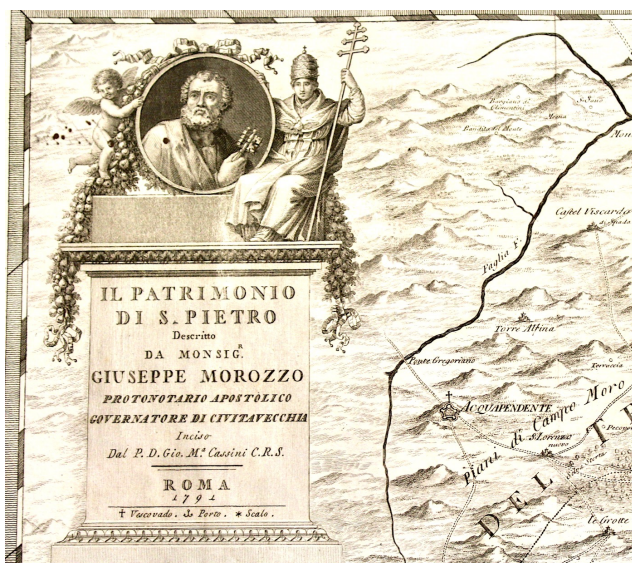 IL PATRIMONIO
DI S. PIETRO
Descritto
DA MONSIG.R
GIUSEPPE MOROZZO
PROTONOTARIO APOSTOLICO
GOVERNATORE DI CIVITAVECCHIA
Inciso
Dal P. D. Gio. M.a Cassini C. R. S.
ROMA
1791
† Vescovado. ⚓ Porto. * Scalo.
Mon
Castel Viscardo
Paglia F.
Torre Alfina
Ponte Gregoriano
Torraccia
ACQUAPENDENTE
Piani di Campo Moro
S. Lorenzo
nuovo
DEL TE
le Grotte